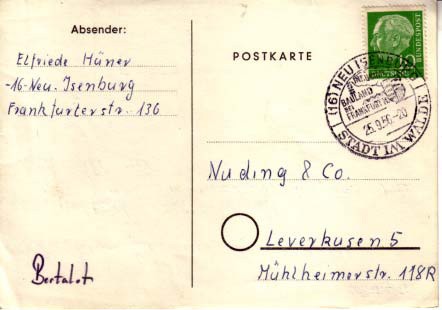 Absender:
Elfriede Hüner
-16-Neu. Isenburg
Frankfurterstr. 136
POSTKARTE
DEUTSCHE BUNDESPOST
(16) NEU ISENBURG
BAULAND
BEI
FRANKFURT
25.9.56.-20
STADT IM WALDE
Nuding & Co.
Leverkusen 5
Mühlheimerstr. 118R